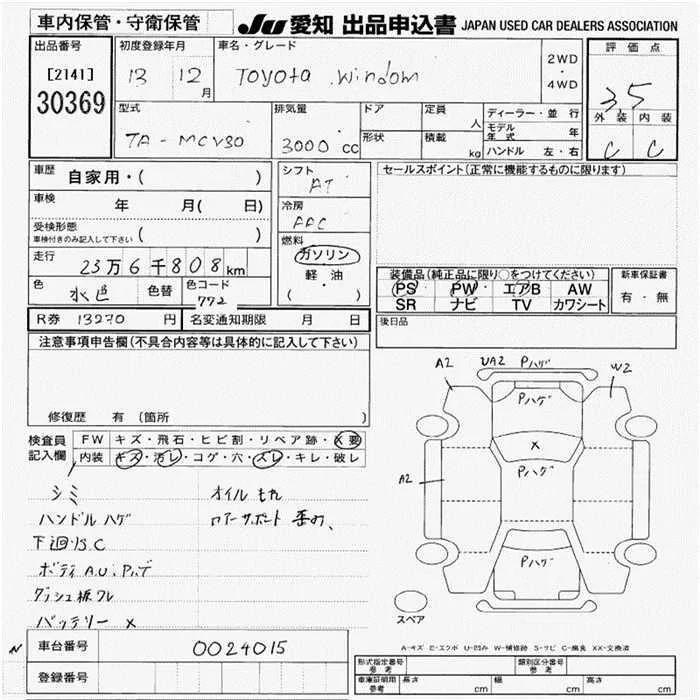 車内保管・守衛保管
JU 愛知 出品申込書 JAPAN USED CAR DEALERS ASSOCIATION
出品番号
[2141]
30369
初度登録年月
13 12月
車名・グレード
TOYOTA Windom
2WD
・
4WD
評価点
3,5
外装 内装
C C
型式
TA-MCV30
排気量
3000 cc
ドア
形状
定員
人
積載
kg
ディーラー・並行
モデル年式 年
ハンドル 左・右
車歴 自家用・( )
車検 年 月( 日)
受検形態
車検付きのみ記入して下さい ( )
走行
23万6千808km
色 水色 色替 色コード 772
シフト
AT
冷房
AAC
燃料
ガソリン
軽油
( ・ )
セールスポイント(正常に機能するものに限ります)
装備品(純正品に限り○をつけてください)
PS PW エアB AW
SR ナビ TV カワシート
新車保証書
有・無
R券 13270 円 名変通知期限 月 日
後日品
注意事項申告欄(不具合内容等は具体的に記入して下さい)
修復歴 有(箇所 )
検査員記入欄
FW キズ・飛石・ヒビ割・リペア跡・X要
内装 キズ・汚レ・コゲ・穴・スレ・キレ・破レ
シミ
ハンドルハゲ
下廻りS.C
ボディA.U.Pハゲ
ダッシュ板ワレ
バッテリー X
オイルもれ
ロアーサポート歪み、
A2 UA2 Pハゲ W2
Pハゲ
X
Pハゲ
A2
Pハゲ
スペア
N
車台番号 0024015
登録番号
A-キズ E-エクボ U-凹み W-補修跡 S-サビ C-腐食 XX-交換済
型式指定番号 参考
類別区分番号 参考
車庫証明用 参考
長さ cm 幅 cm 高さ cm